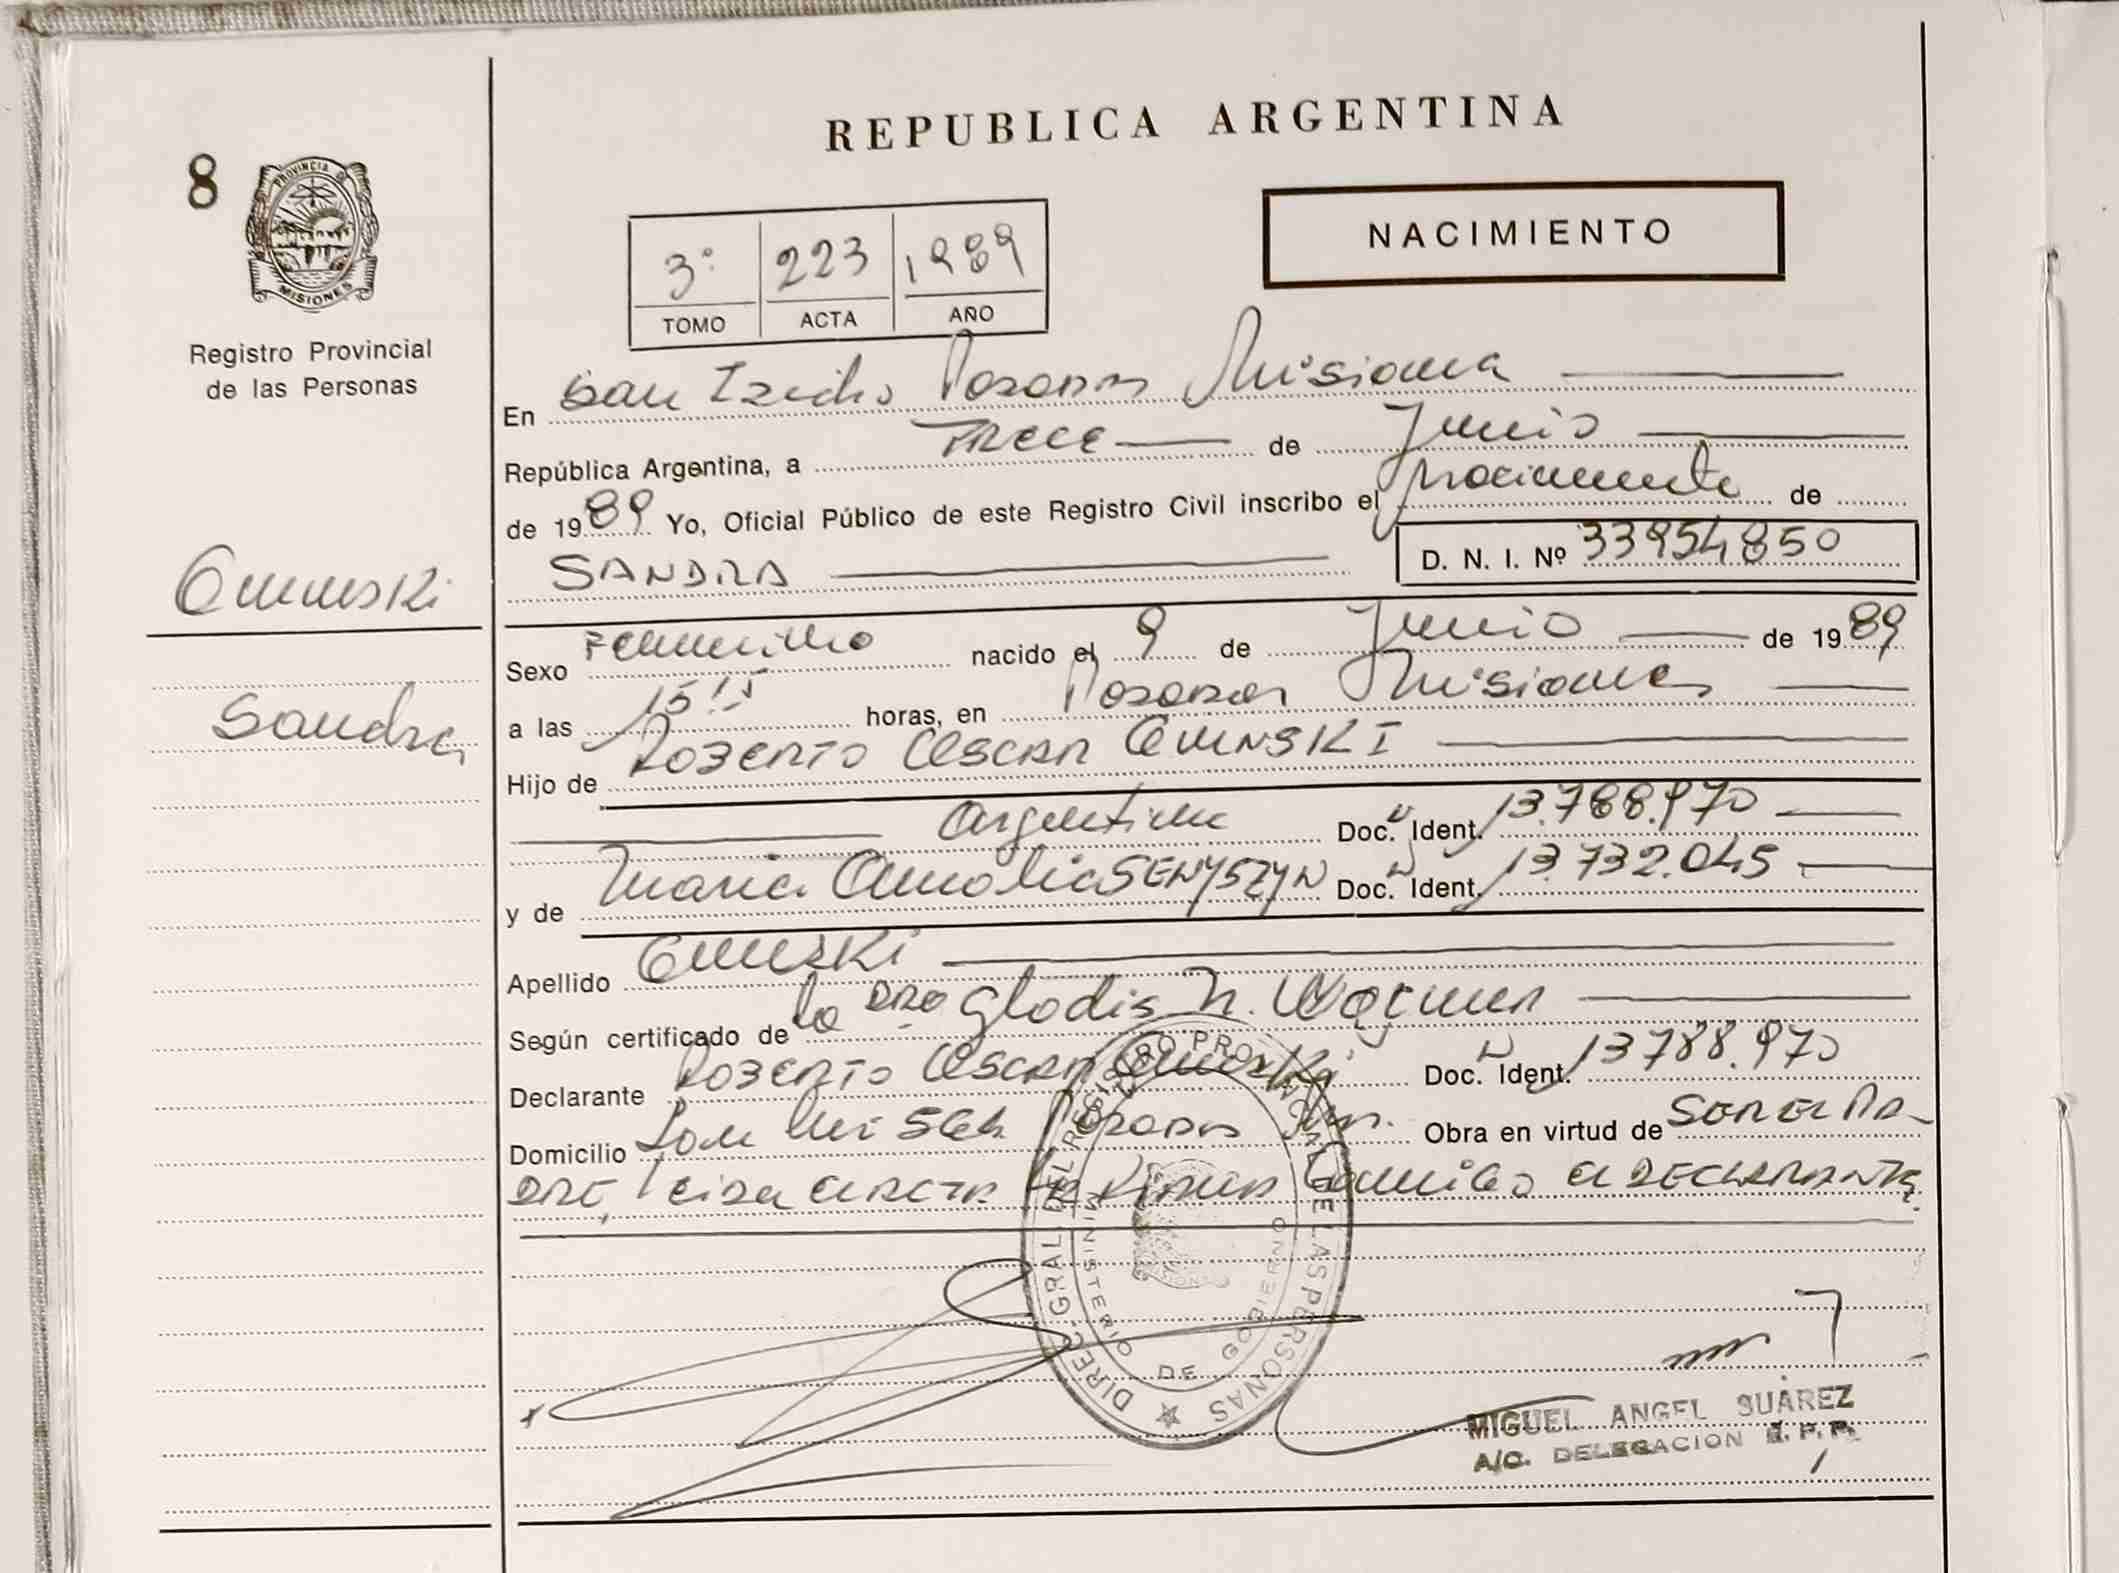 REPUBLICA ARGENTINA
8
PROVINCIA DE
MISIONES
Registro Provincial
de las Personas
NACIMIENTO
3° 223 1989
TOMO ACTA AÑO
En San Isidro Posadas Misiones
República Argentina, a TRECE de Junio
de 1989 Yo, Oficial Público de este Registro Civil inscribo el nacimiento de
SANDRA
D. N. I. Nº 33954850
Sandra
Sexo Femenino nacido el 9 de Junio de 1989
a las 15 horas, en Posadas Misiones
Hijo de ROBERTO OSCAR
Argentino Doc. Ident. 13.788.970
y de Maria SENYSZYN Doc. Ident. 13.732.045
Apellido
Según certificado de la DRA Gladis N.
Declarante ROBERTO OSCAR Doc. Ident. 13788.970
Domicilio Posadas Obra en virtud de SER EL PA-
DRE, leida el ACTA la FIRMA Conmigo el DECLARANTE
DIREC. GRAL. DEL REGISTRO PROVINCIAL DE LAS PERSONAS
MINISTERIO DE GOBIERNO
MIGUEL ANGEL SUÁREZ
A/C. DELEGACION R. P. P.